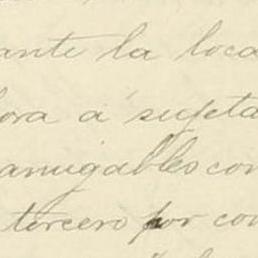 ante la loca
ora a sujeta
amigables con
tercero por con